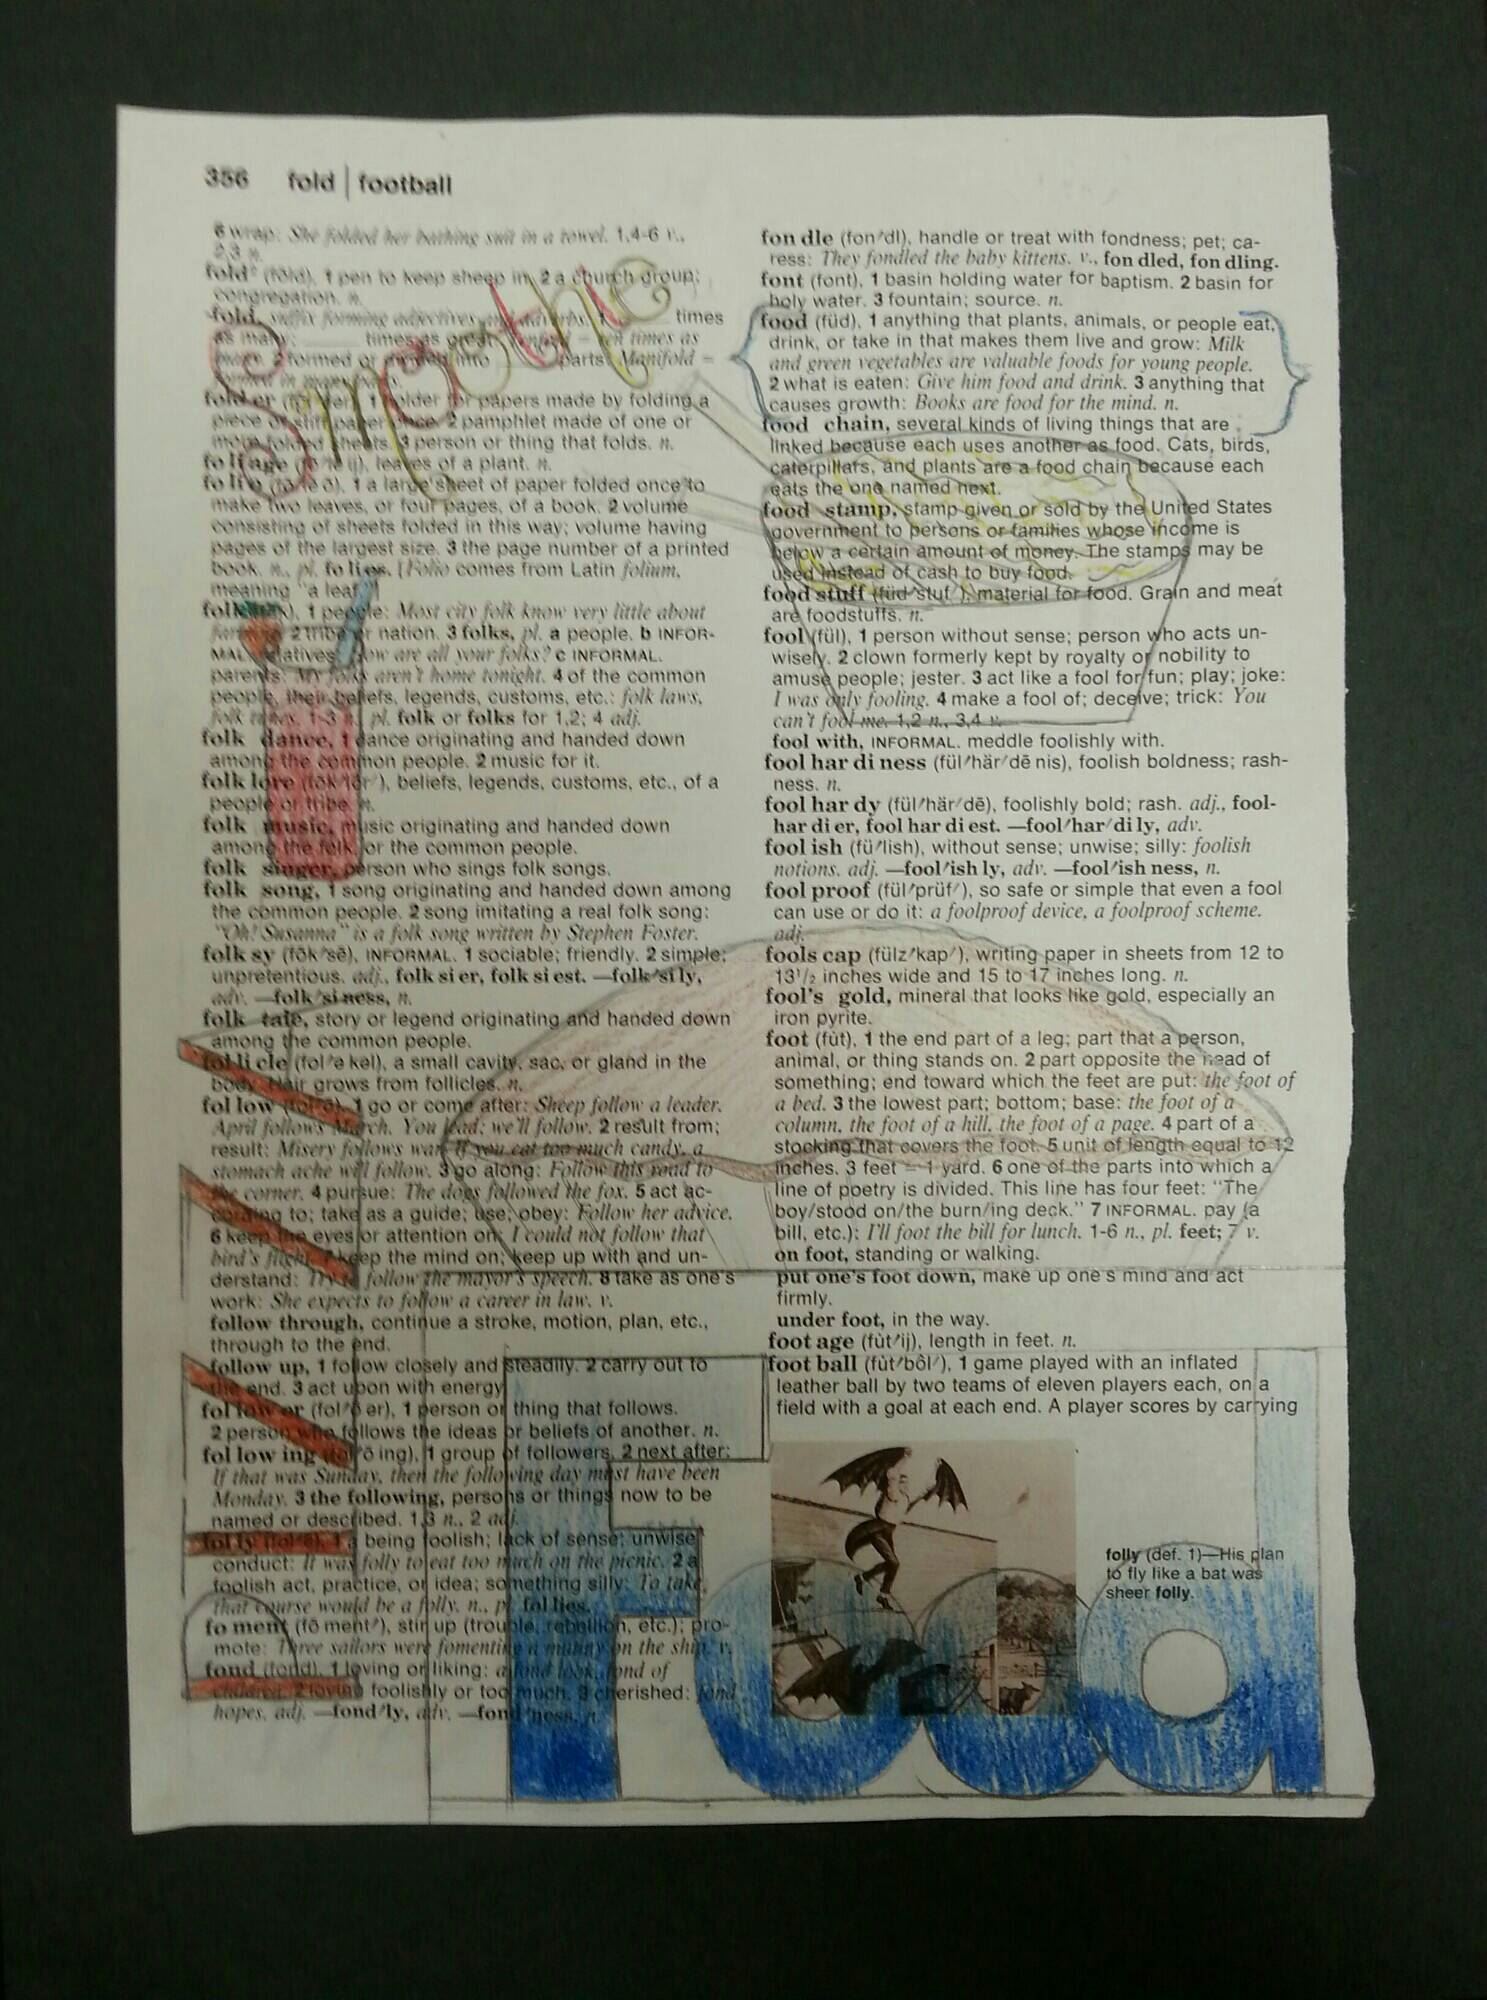 356 fold | football
6 wrap: She folded her bathing suit in a towel. 1,4-6 v.,
2,3 n.
fold² (fōld), 1 pen to keep sheep in. 2 a church group;
congregation. n.
-fold, suffix forming adjectives and adverbs. 1 ____ times
as many; ____ times as great: Tenfold = ten times as
many. 2 formed or divided into ____ parts: Manifold =
formed in many parts.
fold er (fōl′dər), 1 holder for papers made by folding a
piece of stiff paper once. 2 pamphlet made of one or
more folded sheets. 3 person or thing that folds. n.
fo li age (fō′lē ij), leaves of a plant. n.
fo li o (fō′lē ō), 1 a large sheet of paper folded once to
make two leaves, or four pages, of a book. 2 volume
consisting of sheets folded in this way; volume having
pages of the largest size. 3 the page number of a printed
book. n., pl. fo li os. [Folio comes from Latin folium,
meaning "a leaf."]
folk (fōk), 1 people: Most city folk know very little about
farming. 2 tribe or nation. 3 folks, pl. a people. b INFOR-
MAL. relatives: How are all your folks? c INFORMAL.
parents: My folks aren't home tonight. 4 of the common
people, their beliefs, legends, customs, etc.: folk laws,
folk tunes. 1-3 n., pl. folk or folks for 1,2; 4 adj.
folk dance, 1 dance originating and handed down
among the common people. 2 music for it.
folk lore (fōk′lôr′), beliefs, legends, customs, etc., of a
people or tribe. n.
folk music, music originating and handed down
among the folk, or the common people.
folk singer, person who sings folk songs.
folk song, 1 song originating and handed down among
the common people. 2 song imitating a real folk song:
"Oh! Susanna" is a folk song written by Stephen Foster.
folk sy (fōk′sē), INFORMAL. 1 sociable; friendly. 2 simple;
unpretentious. adj., folk si er, folk si est. —folk′si ly,
adv. —folk′si ness, n.
folk tale, story or legend originating and handed down
among the common people.
fol li cle (fol′ə kəl), a small cavity, sac, or gland in the
body. Hair grows from follicles. n.
fol low (fol′ō), 1 go or come after: Sheep follow a leader.
April follows March. You lead; we'll follow. 2 result from;
result: Misery follows war. If you eat too much candy, a
stomach ache will follow. 3 go along: Follow this road to
the corner. 4 pursue: The dogs followed the fox. 5 act ac-
cording to; take as a guide; use; obey: Follow her advice.
6 keep the eyes or attention on: I could not follow that
bird's flight. 7 keep the mind on; keep up with and un-
derstand: Try to follow the mayor's speech. 8 take as one's
work: She expects to follow a career in law. v.
follow through, continue a stroke, motion, plan, etc.,
through to the end.
follow up, 1 follow closely and steadily. 2 carry out to
the end. 3 act upon with energy.
fol low er (fol′ō ər), 1 person or thing that follows.
2 person who follows the ideas or beliefs of another. n.
fol low ing (fol′ō ing), 1 group of followers. 2 next after:
If that was Sunday, then the following day must have been
Monday. 3 the following, persons or things now to be
named or described. 1,3 n., 2 adj.
fol ly (fol′ē), 1 a being foolish; lack of sense; unwise
conduct: It was folly to eat too much on the picnic. 2 a
foolish act, practice, or idea; something silly: To take
that course would be a folly. n., pl. fol lies.
fo ment (fō ment′), stir up (trouble, rebellion, etc.); pro-
mote: Three sailors were fomenting a mutiny on the ship. v.
fond (fond), 1 loving or liking: a fond look, fond of
children. 2 loving foolishly or too much. 3 cherished: fond
hopes. adj. —fond′ly, adv. —fond′ness, n.
fon dle (fon′dl), handle or treat with fondness; pet; ca-
ress: They fondled the baby kittens. v., fon dled, fon dling.
font (font), 1 basin holding water for baptism. 2 basin for
holy water. 3 fountain; source. n.
food (füd), 1 anything that plants, animals, or people eat,
drink, or take in that makes them live and grow: Milk
and green vegetables are valuable foods for young people.
2 what is eaten: Give him food and drink. 3 anything that
causes growth: Books are food for the mind. n.
food chain, several kinds of living things that are
linked because each uses another as food. Cats, birds,
caterpillars, and plants are a food chain because each
eats the one named next.
food stamp, stamp given or sold by the United States
government to persons or families whose income is
below a certain amount of money. The stamps may be
used instead of cash to buy food.
food stuff (füd′stuf′), material for food. Grain and meat
are foodstuffs. n.
fool (fül), 1 person without sense; person who acts un-
wisely. 2 clown formerly kept by royalty or nobility to
amuse people; jester. 3 act like a fool for fun; play; joke:
I was only fooling. 4 make a fool of; deceive; trick: You
can't fool me. 1,2 n., 3,4 v.
fool with, INFORMAL. meddle foolishly with.
fool har di ness (fül′här′dē nis), foolish boldness; rash-
ness. n.
fool har dy (fül′här′dē), foolishly bold; rash. adj., fool-
har di er, fool har di est. —fool′har′di ly, adv.
fool ish (fü′lish), without sense; unwise; silly: foolish
notions. adj. —fool′ish ly, adv. —fool′ish ness, n.
fool proof (fül′prüf′), so safe or simple that even a fool
can use or do it: a foolproof device, a foolproof scheme.
adj.
fools cap (fülz′kap′), writing paper in sheets from 12 to
13½ inches wide and 15 to 17 inches long. n.
fool's gold, mineral that looks like gold, especially an
iron pyrite.
foot (fu̇t), 1 the end part of a leg; part that a person,
animal, or thing stands on. 2 part opposite the head of
something; end toward which the feet are put: the foot of
a bed. 3 the lowest part; bottom; base: the foot of a
column, the foot of a hill, the foot of a page. 4 part of a
stocking that covers the foot. 5 unit of length equal to 12
inches. 3 feet = 1 yard. 6 one of the parts into which a
line of poetry is divided. This line has four feet: "The
boy/stood on/the burn/ing deck." 7 INFORMAL. pay (a
bill, etc.): I'll foot the bill for lunch. 1-6 n., pl. feet; 7 v.
on foot, standing or walking.
put one's foot down, make up one's mind and act
firmly.
under foot, in the way.
foot age (fu̇t′ij), length in feet. n.
foot ball (fu̇t′bôl′), 1 game played with an inflated
leather ball by two teams of eleven players each, on a
field with a goal at each end. A player scores by carrying
folly (def. 1)—His plan
to fly like a bat was
sheer folly.
Food